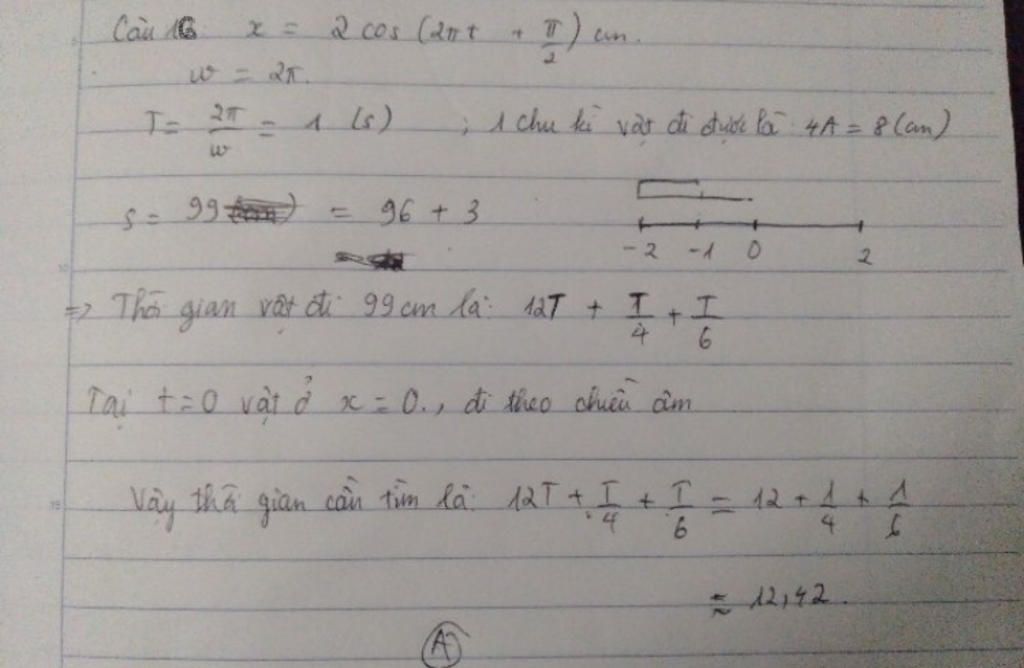 Câu 16 x = 2 cos (2πt + π/2) cm.
w = 2π.
T = 2π/w = 1 (s) ; 1 chu kì vật đi được là: 4A = 8 (cm)
s = 99 = 96 + 3
-2 -1 0 2
=> Thời gian vật đi 99 cm là: 12T + T/4 + T/6
Tại t = 0 vật ở x = 0., đi theo chiều âm
Vậy thời gian cần tìm là: 12T + T/4 + T/6 = 12 + 1/4 + 1/6
≈ 12,42.
A